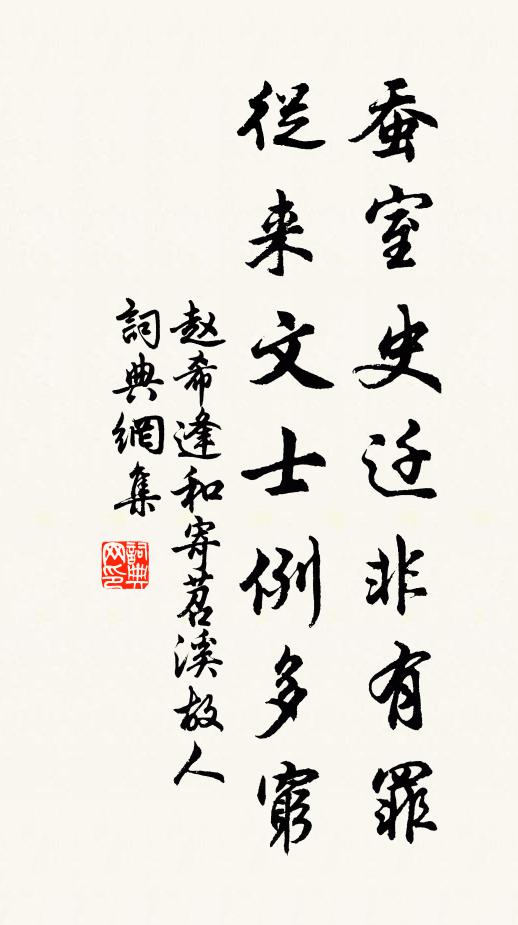 蚕室史迁非有罪
從来文士例多窮
赵希逢和寄苕溪故人
詞典網集
詞典网印